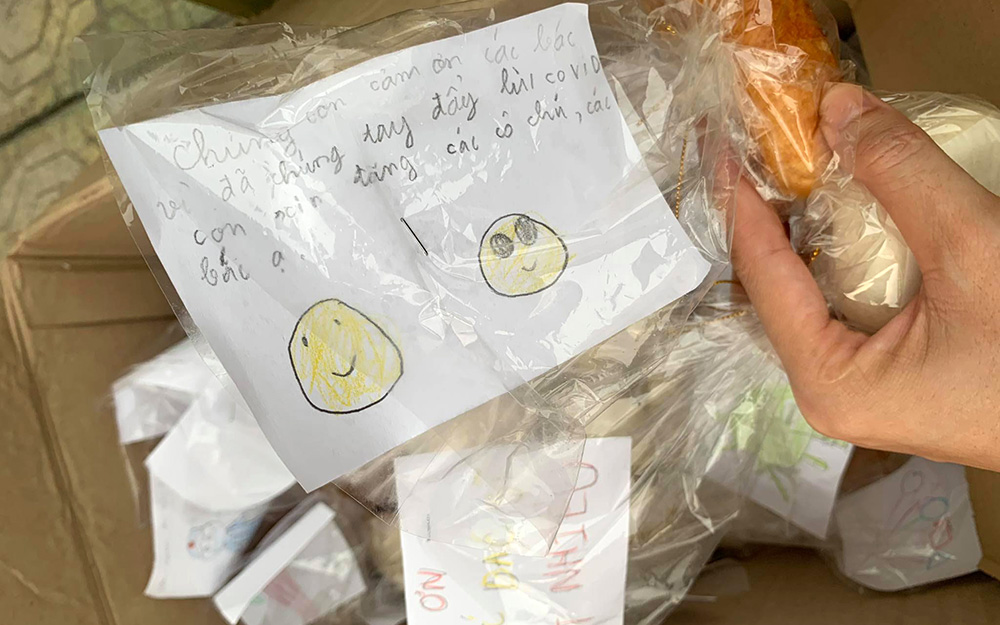 Chúng con cảm ơn các bác
đã chung tay đẩy lùi COVID
vì con xin tặng các cô chú, các
bác ạ.
ƠN
BÁC
NHIỀU